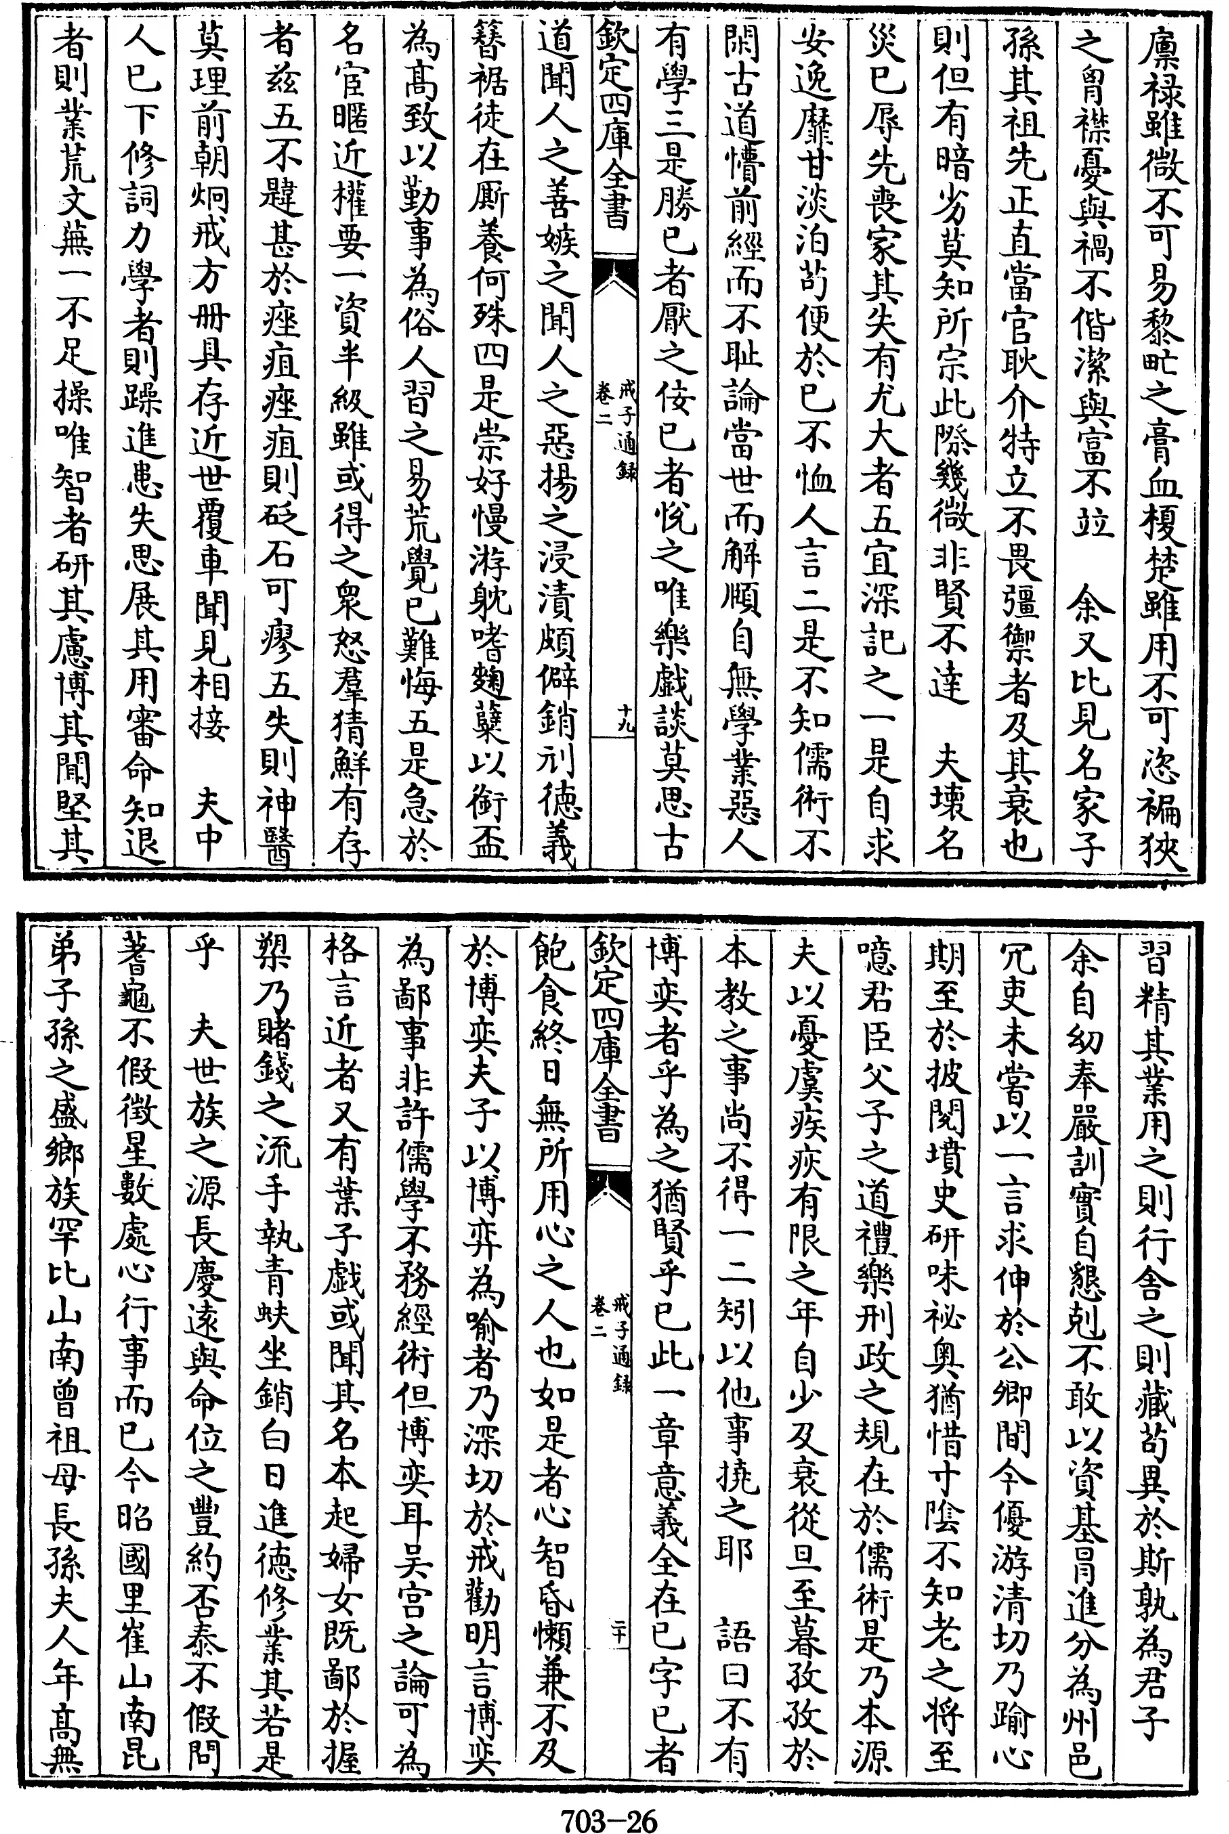 廪禄雖微不可易黎甿之膏血榎楚雖用不可恣褊狹
之胷襟憂與禍不偕潔與富不竝　余又比見名家子
孫其祖先正直當官耿介特立不畏彊禦者及其衰也
則但有暗劣莫知所宗此際幾微非賢不達　夫壊名
災已辱先喪家其失有尤大者五宜深記之一是自求
安逸靡甘淡泊茍便於已不恤人言二是不知儒術不
閑古道懵前經而不耻論當世而解頤自無學業惡人
有學三是勝已者厭之佞已者悅之唯樂戲談莫思古
欽定四庫全書
戒子通録
卷二
十九
道聞人之善嫉之聞人之惡揚之浸漬頗僻銷刓徳義
簪裾徒在厮養何殊四是崇好慢游躭嗜麴糵以銜盃
為髙致以勤事為俗人習之易荒覺已難悔五是急於
名宦暱近權要一資半級雖或得之衆怒羣猜鮮有存
者兹五不韙甚於痤疽痤疽則砭石可瘳五失則神醫
莫理前朝炯戒方冊具存近世覆車聞見相接　夫中
人已下修詞力學者則躁進患失思展其用審命知退
者則業荒文蕪一不足操唯智者研其慮博其聞堅其
習精其業用之則行舎之則藏茍異於斯孰為君子
余自幼奉嚴訓實自懇剋不敢以資基冐進分為州邑
冗吏未嘗以一言求伸於公卿間今優游清切乃踰心
期至於披閱墳史研味祕奥猶惜寸隂不知老之將至
噫君臣父子之道禮樂刑政之規在於儒術是乃本源
夫以憂虞疾疢有限之年自少及衰從旦至暮孜孜於
本教之事尚不得一二矧以他事撓之耶　語曰不有
博奕者乎為之猶賢乎已此一章意義全在已字已者
欽定四庫全書
戒子通録
卷二
二十
飽食終日無所用心之人也如是者心智昏懶兼不及
於博奕夫子以博弈為喻者乃深切於戒勸明言博奕
為鄙事非許儒學不務經術但博奕耳吴宫之論可為
格言近者又有葉子戲或聞其名本起婦女既鄙於握
槊乃賭錢之流手執青蚨坐銷白日進徳修業其若是
乎　夫世族之源長慶逺與命位之豐約否泰不假問
蓍龜不假徴星數處心行事而已今昭國里崔山南昆
弟子孫之盛鄉族罕比山南曾祖母長孫夫人年髙無
703-26